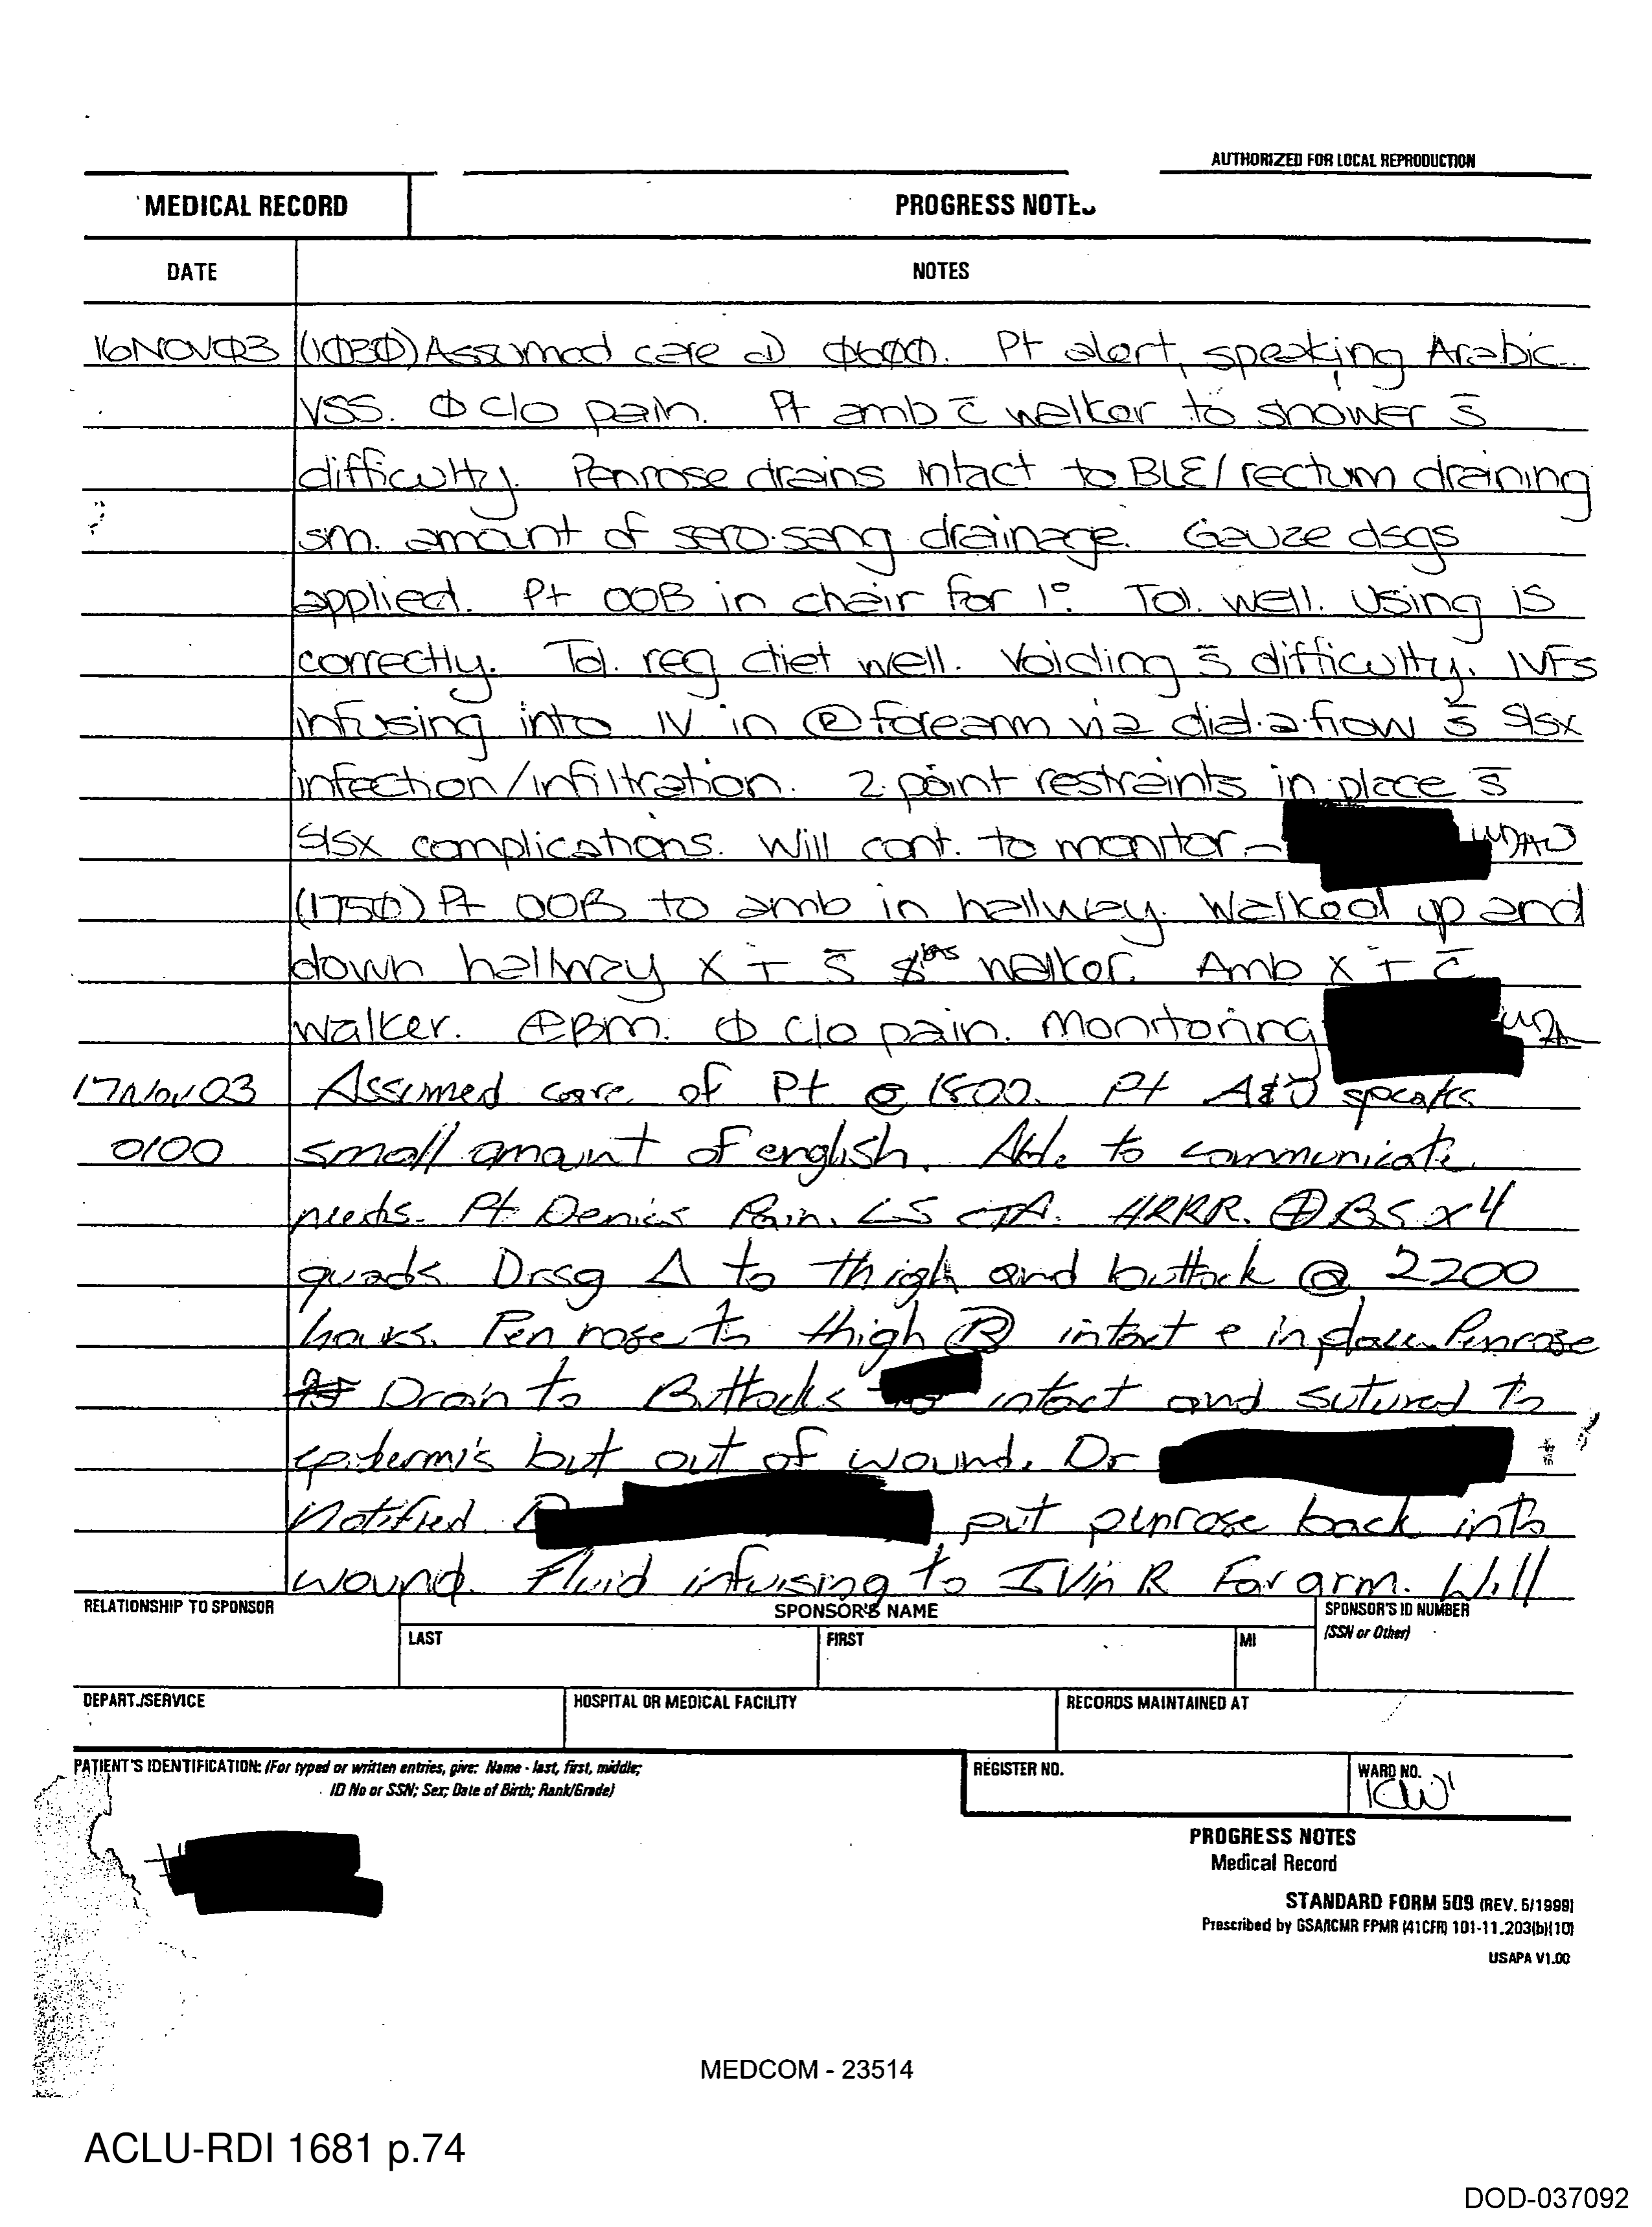 AUTHORIZED FOR LOCAL REPRODUCTION
MEDICAL RECORD
PROGRESS NOTES
DATE
NOTES
16NOVØ3 (1Ø3Ø) Assumed care @ Ø6ØØ. Pt alert, speaking Arabic.
VSS. Ø c/o pain. Pt amb c̄ walker to shower s̄
difficulty. Penrose drains intact to BLE/rectum draining
sm. amount of sero-sang drainage. Gauze dsgs
applied. Pt OOB in chair for 1°. Tol. well. Using IS
correctly. Tol. reg diet well. Voiding s̄ difficulty. IVFs
infusing into IV in Ⓡ forearm via dial-a-flow s̄ S/sx
infection/infiltration. 2-point restraints in place s̄
S/sx complications. Will cont. to monitor -
(175Ø) Pt OOB to amb in hallway. Walked up and
down hallway x I s̄ walker. Amb x I c̄
walker. ⊕BM. Ø c/o pain. Monitoring
17Nov03 Assumed care of Pt @ 1800. Pt A&O speaks
0100 small amount of english. Able to communicate
needs. Pt Denies Pain. LS CTA. HRRR. ⊕BS x 4
quads. Drssg Δ to thigh and buttock @ 2200
hours. Penrose to thigh Ⓡ intact e in place. Penrose
Drain to Buttocks intact and sutured to
epidermis but out of wound. Dr
Notified put penrose back into
wound. Fluid infusing to IV in R Forarm. Will
RELATIONSHIP TO SPONSOR
SPONSOR'S NAME
SPONSOR'S ID NUMBER
(SSN or Other)
LAST
FIRST
MI
DEPART./SERVICE
HOSPITAL OR MEDICAL FACILITY
RECORDS MAINTAINED AT
PATIENT'S IDENTIFICATION: (For typed or written entries, give: Name - last, first, middle;
ID No or SSN; Sex; Date of Birth; Rank/Grade)
REGISTER NO.
WARD NO.
ICW1
PROGRESS NOTES
Medical Record
STANDARD FORM 509 (REV. 5/1999)
Prescribed by GSA/ICMR FPMR (41CFR) 101-11.203(b)(10)
USAPA V1.00
MEDCOM - 23514
ACLU-RDI 1681 p.74
DOD-037092